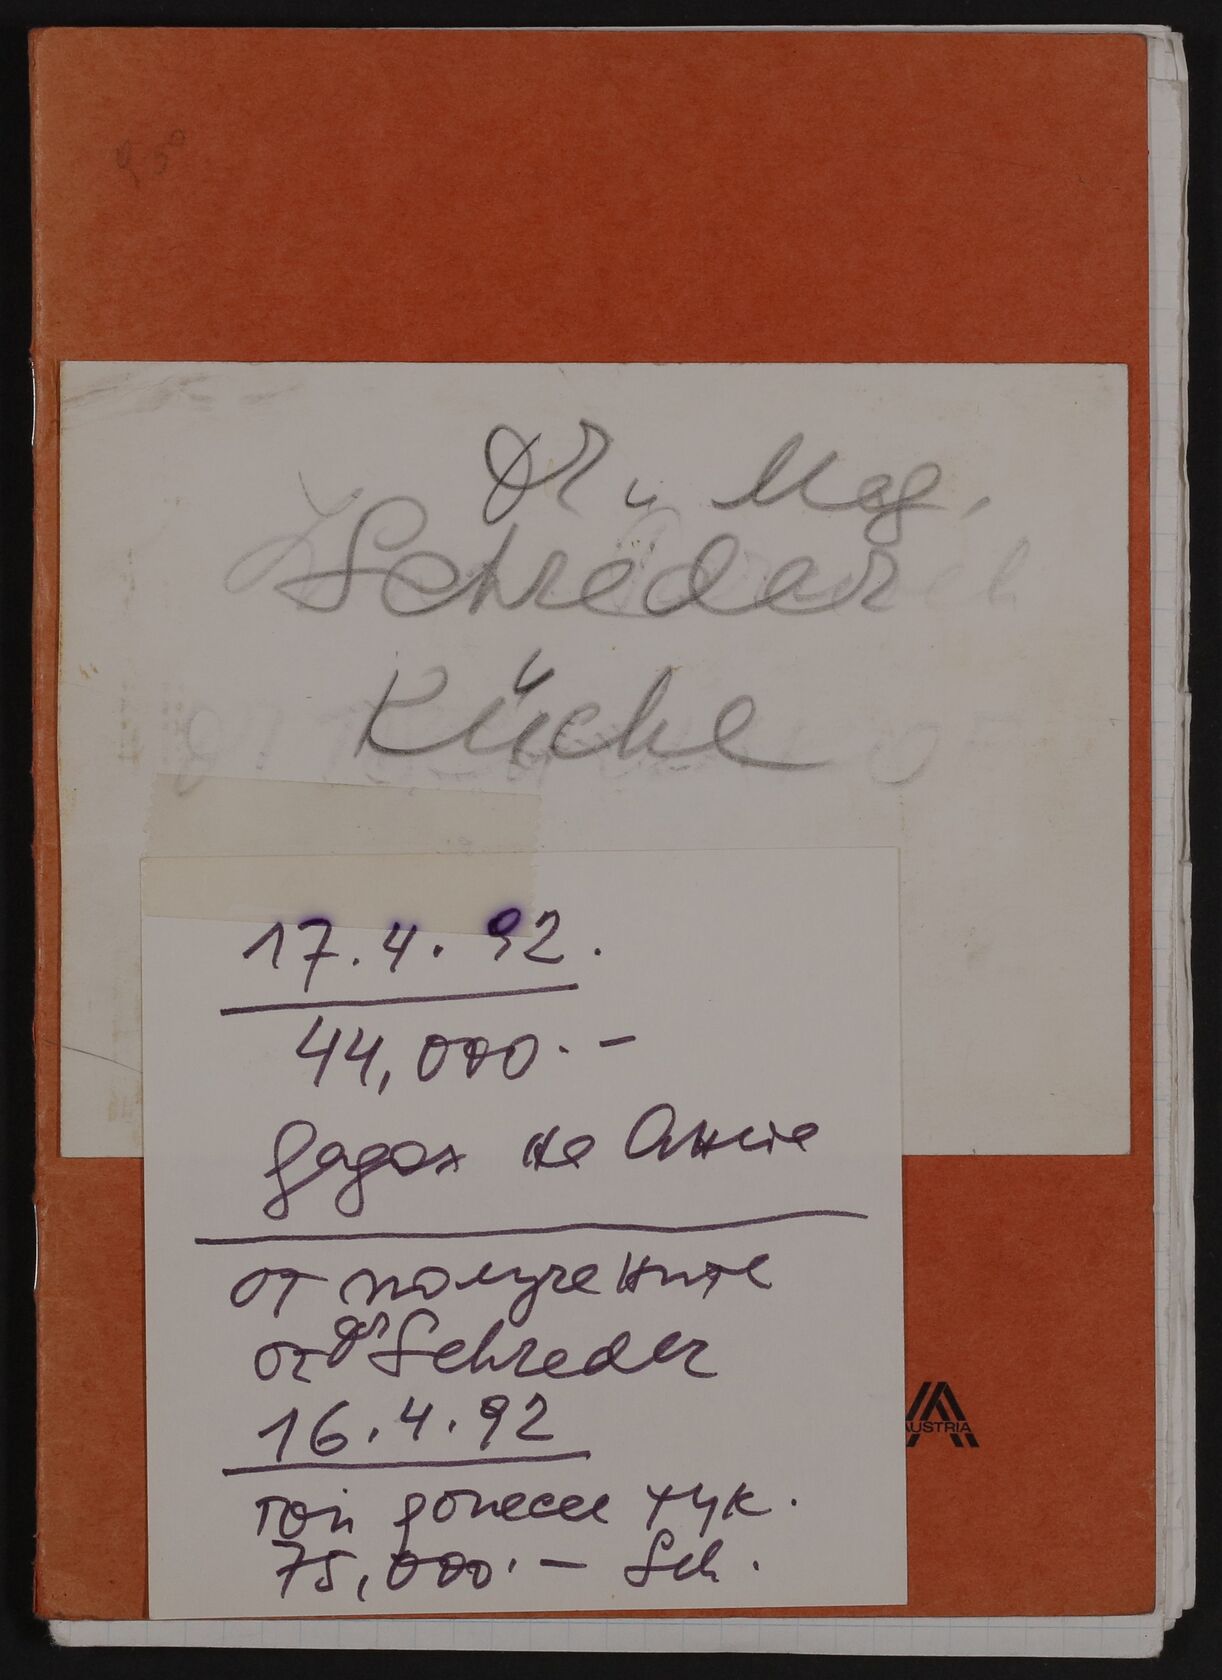 9.50
Dr. u Mag.
Schreder
Küche
17.4.92.
44,000.-
дадох на Аните
от получените
от Dr Schreder
16.4.92
той донесе тук.
75,000.- Sch.
AUSTRIA